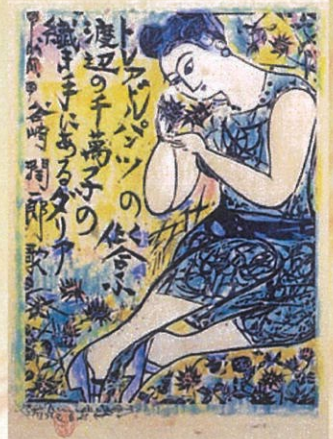 トレアドルパンツの似合ふ
渡辺の千萬子の
繊き手にあるダリア
谷崎潤一郎歌